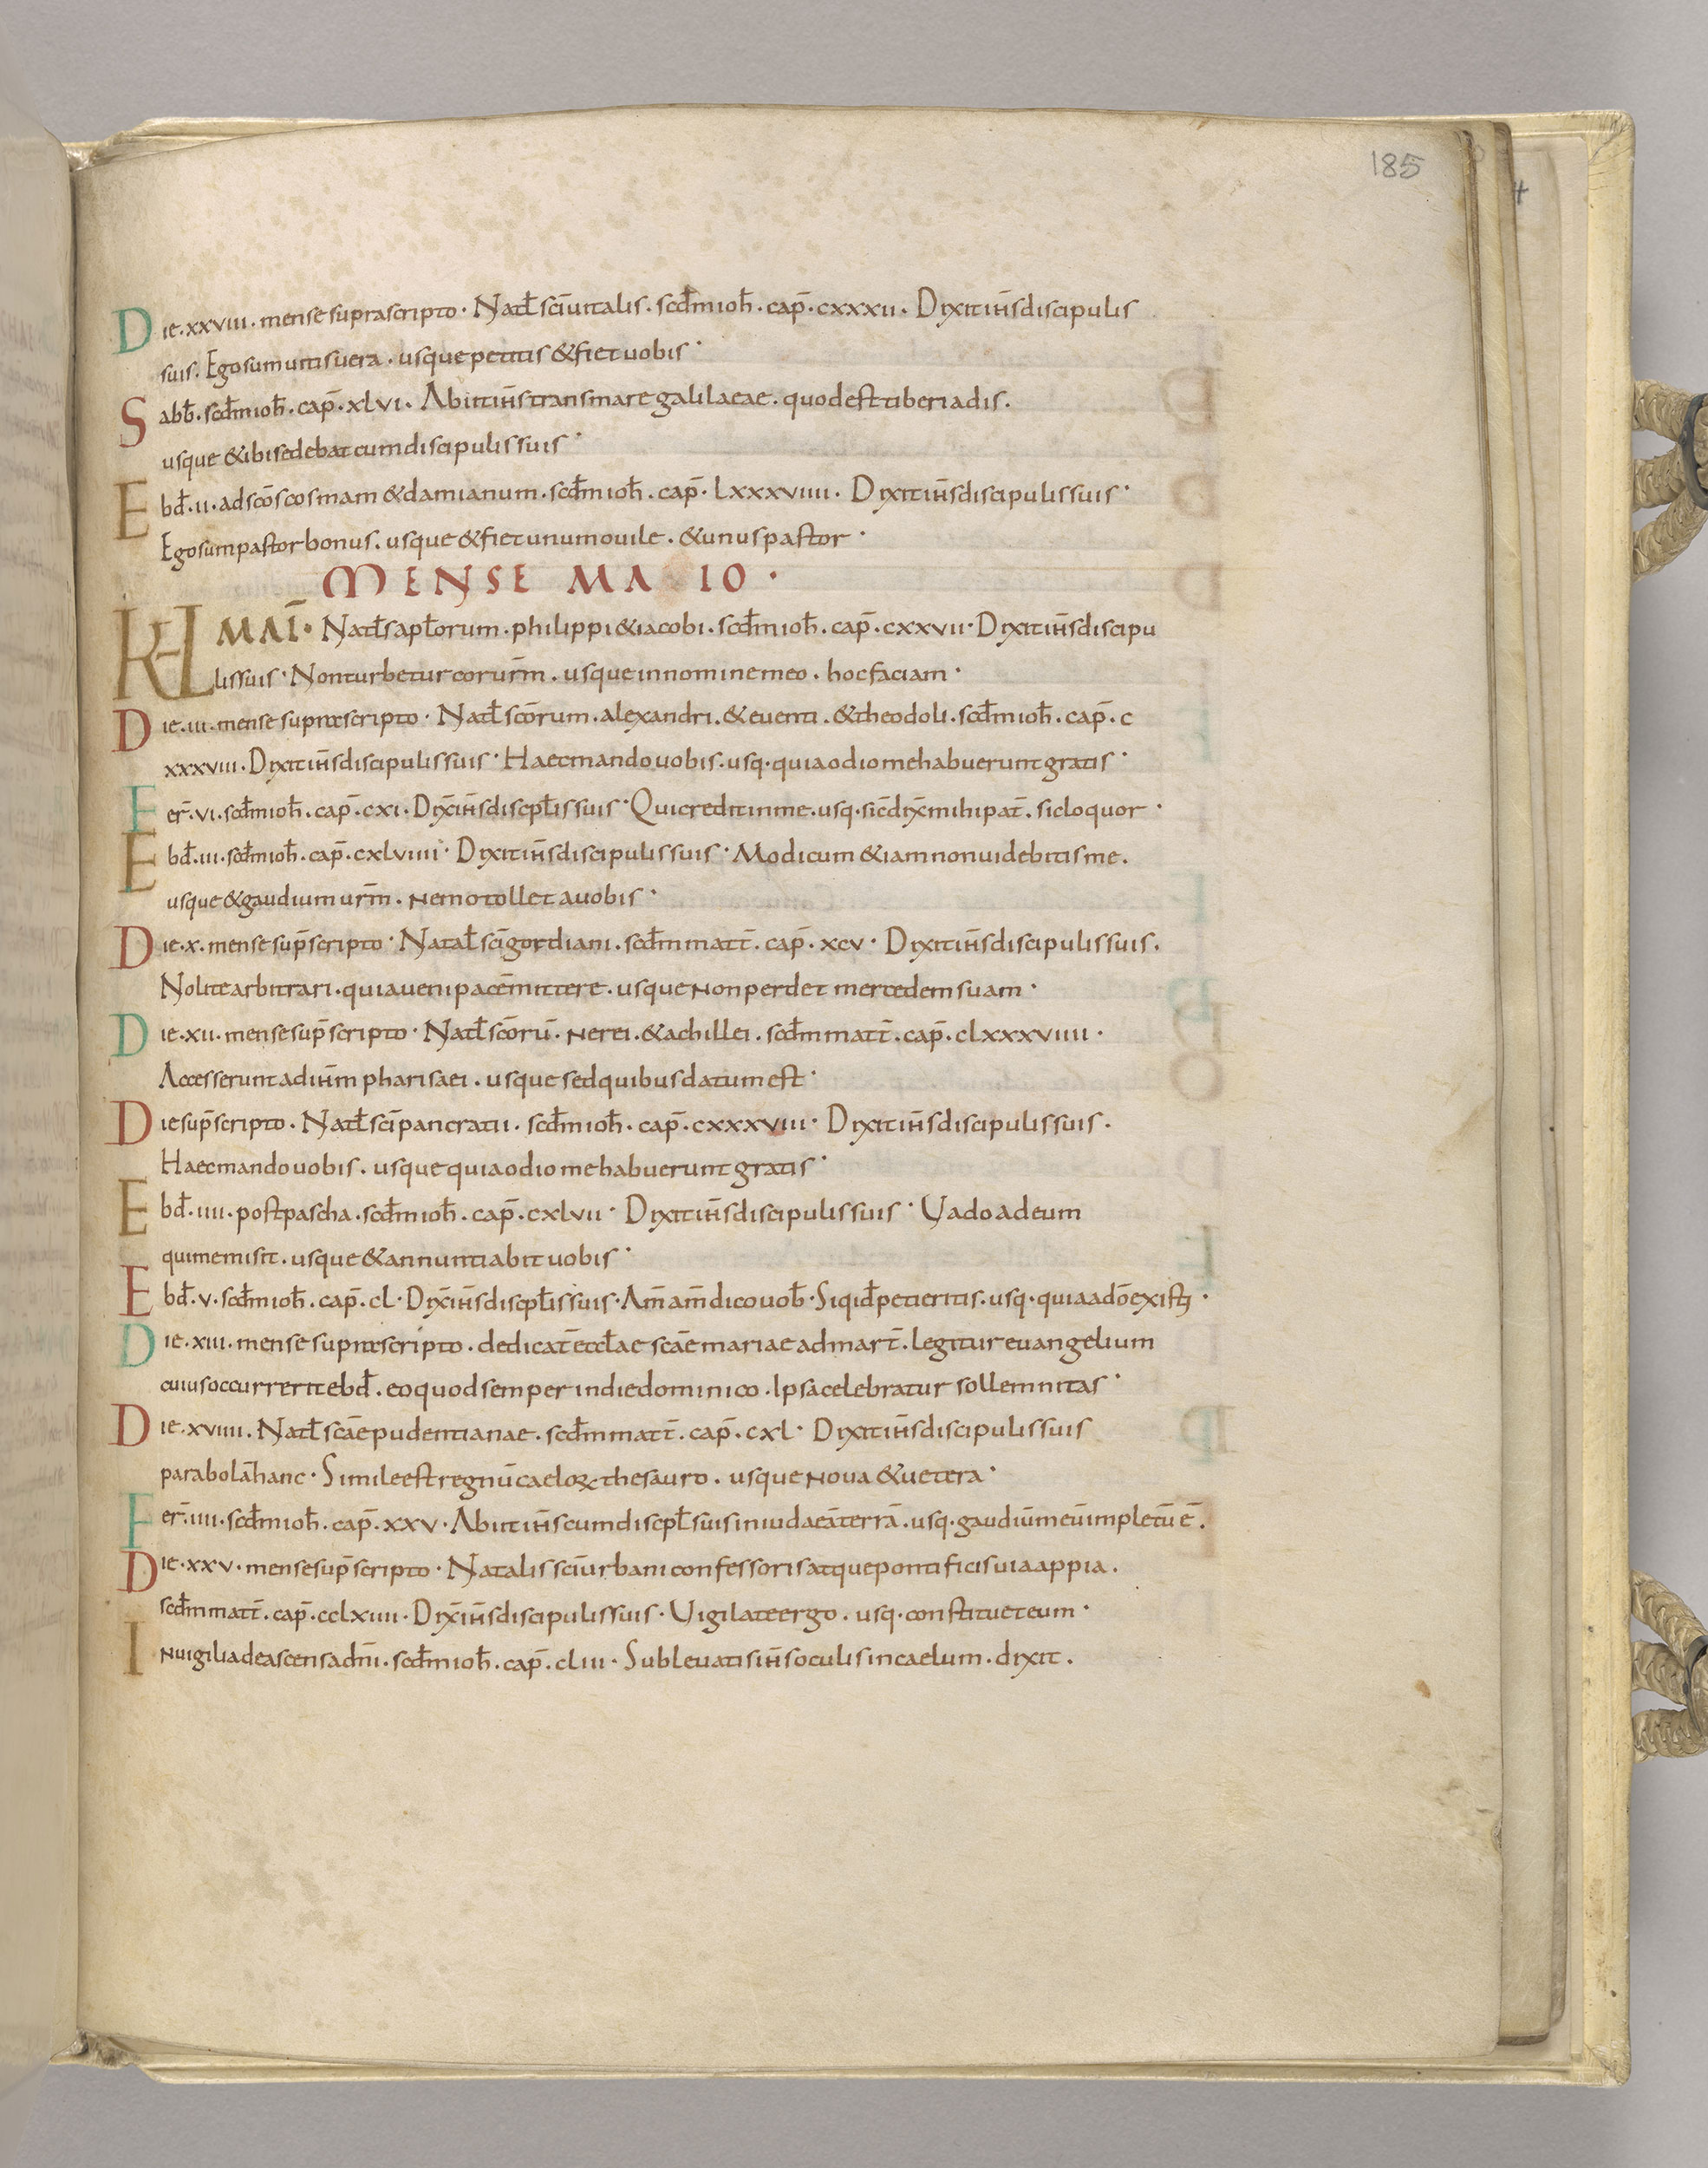 185
Die · xxviii · mense suprascripto · Natł scī uitalis · scđm ioħ · cap̄ · cxxxii · Dixit iħs discipulis
suis · Ego sum uitis uera · usque petitis & fiet uobis ·
Sabb̄ · scđm ioħ · cap̄ · xlvi · Abiit iħs trans mare galilaeae · quod est tiberiadis ·
usque & ibi sedebat cum discipulis suis ·
Ebđ · ii · ad scōs cosmam & damianum · scđm ioħ · cap̄ · lxxxviiii · Dixit iħs discipulis suis ·
Ego sum pastor bonus · usque & fiet unum ouile · & unus pastor ·
MENSE MAIO ·
KL MAĪ · Natł sapłorum · philippi & iacobi · scđm ioħ · cap̄ · cxxvii · Dixit iħs discipu
lis suis · Non turbetur cor ur̄m · usque in nomine meo · hoc faciam ·
Die · iii · mense suprascripto · Natł scōrum · alexandri · & euenti · & theodoli · scđm ioħ · cap̄ · c
xxxviii · Dixit iħs discipulis suis · Haec mando uobis · usq · quia odio me habuerunt gratis ·
Fer̄ · vi · scđm ioħ · cap̄ · cxi · Dix̄ iħs discipłis suis · Qui credit in me · usq · sic̄ dix̄ mihi pat̄ · sic loquor ·
Ebđ · iii · scđm ioħ · cap̄ · cxlviiii · Dixit iħs discipulis suis · Modicum & iam non uidebitis me ·
usque & gaudium ur̄m · nemo tollet a uobis ·
Die · x · mense sup̄scripto · Natał scī gordiani · scđm matt̄ · cap̄ · xcv · Dixit iħs discipulis suis ·
Nolite arbitrari · quia ueni pacēm mittere · usque non perdet mercedem suam ·
Die · xii · mense sup̄scripto · Natł scōrū · nerei · & achillei · scđm matt̄ · cap̄ · clxxxviiii ·
Accesserunt ad iħm pharisaei · usque sed quibus datum est ·
Die sup̄scripto · Natł scī pancratii · scđm ioħ · cap̄ · cxxxviii · Dixit iħs discipulis suis ·
Haec mando uobis · usque quia odio me habuerunt gratis ·
Ebđ · iiii · post pascha · scđm ioħ · cap̄ · cxlvii · Dixit iħs discipulis suis · Uado ad eum
qui me misit · usque & annuntiabit uobis ·
Ebđ · v · scđm ioħ · cap̄ · cl · Dix̄ iħs discipłis suis · Am̄ am̄ dico uob̄ · Si qiđ petieritis · usq · quia a dō existꝫ ·
Die · xiii · mense suprascripto · dedicat̄ eccłae scāe mariae ad mart̄ · legitur euangelium
cuius occurrerit ebđ · eo quod semper in die dominico · Ipsa celebratur sollemnitas ·
Die · xviiii · Natł scāe pudentianae · scđm matt̄ · cap̄ · cxl · Dixit iħs discipulis suis
parabolā hanc · Simile est regnū caeloꝝ thesauro · usque noua & uetera ·
Fer̄ · iiii · scđm ioħ · cap̄ · xxv · Abiit iħs cum discipł suis in iudaeā terrā · usq · gaudiū meū impletū ē ·
Die · xxv · mense sup̄scripto · Natalis scī urbani confessoris atque pontificis uia appia ·
scđm matt̄ · cap̄ · cclxiiii · Dix̄ iħs discipulis suis · Uigilate ergo · usq · constituet eum ·
In uigilia de ascensa dn̄i · scđm ioħ · cap̄ · cliii · Subleuatis iħs oculis in caelum · dixit ·